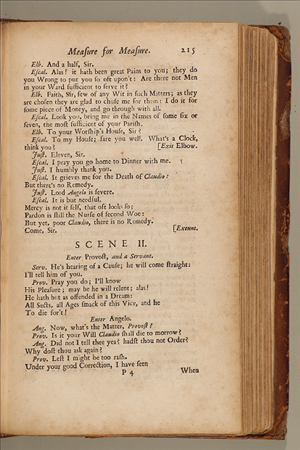 Measure for Measure. 215
Elb. And a half, Sir.
Escal. Alas! it hath been great Pains to you; they do
you Wrong to put you so oft upon't: Are there not Men
in your Ward sufficient to serve it?
Elb. Faith, Sir, few of any Wit in such Matters; as they
are chosen they are glad to chuse me for them: I do it for
some piece of Money, and go through with all.
Escal. Look you, bring me in the Names of some six or
seven, the most sufficient of your Parish.
Elb. To your Worship's House, Sir?
Escal. To my House; fare you well. What's a Clock,
think you? [Exit Elbow.
Just. Eleven, Sir.
Escal. I pray you go home to Dinner with me.
Just. I humbly thank you.
Escal. It grieves me for the Death of Claudio:
But there's no Remedy.
Just. Lord Angelo is severe.
Escal. It is but needful.
Mercy is not it self, that oft looks so;
Pardon is still the Nurse of second Woe:
But yet, poor Claudio, there is no Remedy.
Come, Sir. [Exeunt.
SCENE II.
Enter Provost, and a Servant.
Serv. He's hearing of a Cause; he will come straight:
I'll tell him of you.
Prov. Pray you do; I'll know
His Pleasure; may be he will relent; alas!
He hath but as offended in a Dream:
All Sects, all Ages smack of this Vice, and he
To die for't!
Enter Angelo.
Ang. Now, what's the Matter, Provost?
Prov. Is it your Will Claudio shall die to morrow?
Ang. Did not I tell thee yea? hadst thou not Order?
Why dost thou ask again?
Prov. Lest I might be too rash.
Under your good Correction, I have seen
P 4 When